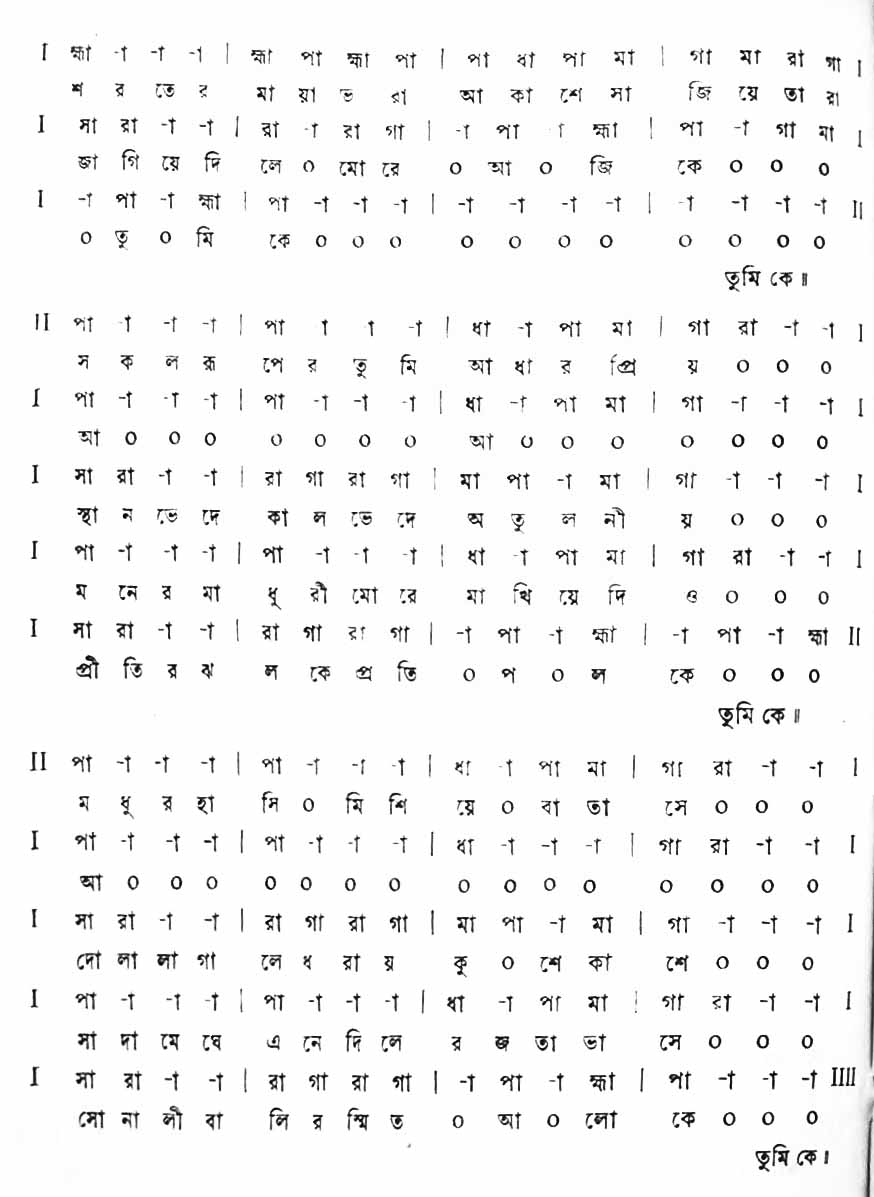 I হ্মা -া -া -া | হ্মা পা হ্মা পা | পা ধা পা মা | গা মা রা গা I
শ র তে র মা য়া ভ রা আ কা শে সা জি য়ে তা রা
I সা রা -া -া | রা -া রা গা | -া পা -া হ্মা | পা -া গা মা I
জা গি য়ে দি লে ০ মো রে ০ আ ০ জি কে ০ ০ ০
I -া পা -া হ্মা | পা -া -া -া | -া -া -া -া | -া -া -া -া II
০ তু ০ মি কে ০ ০ ০ ০ ০ ০ ০ ০ ০ ০ ০
তুমি কে॥
II পা -া -া -া | পা া া -া | ধা -া পা মা | গা রা -া -া I
স ক ল রূ পে র তু মি আ ধা র প্রি য় ০ ০ ০
I পা -া -া -া | পা -া -া -া | ধা -া পা মা | গা -া -া -া I
আ ০ ০ ০ ০ ০ ০ ০ আ ০ ০ ০ ০ ০ ০ ০
I সা রা -া -া | রা গা রা গা | মা পা -া মা | গা -া -া -া I
স্থা ন ভে দে কা ল ভে দে অ তু ল নী য় ০ ০ ০
I পা -া -া -া | পা -া -া -া | ধা -া পা মা | গা রা -া -া I
ম নে র মা ধু রী মো রে মা খি য়ে দি ও ০ ০ ০
I সা রা -া -া | রা গা রা গা | -া পা -া হ্মা | -া পা -া হ্মা II
প্রী তি র ঝ ল কে প্র তি ০ প ০ ল কে ০ ০ ০
তুমি কে॥
II পা -া -া -া | পা -া -া -া | ধা -া পা মা | গা রা -া -া I
ম ধু র হা সি ০ মি শি য়ে ০ বা তা সে ০ ০ ০
I পা -া -া -া | পা -া -া -া | ধা -া -া -া | গা রা -া -া I
আ ০ ০ ০ ০ ০ ০ ০ ০ ০ ০ ০ ০ ০ ০ ০
I সা রা -া -া | রা গা রা গা | মা পা -া মা | গা -া -া -া I
দো লা লা গা লে ধ রা য় কু ০ শে কা শে ০ ০ ০
I পা -া -া -া | পা -া -া -া | ধা -া পা মা | গা রা -া -া I
সা দা মে ঘে এ নে দি লে র জ তা ভা সে ০ ০ ০
I সা রা -া -া | রা গা রা গা | -া পা -া হ্মা | পা -া -া -া IIII
সো না লী বা লি র স্মি ত ০ আ ০ লো কে ০ ০ ০
তুমি কে॥